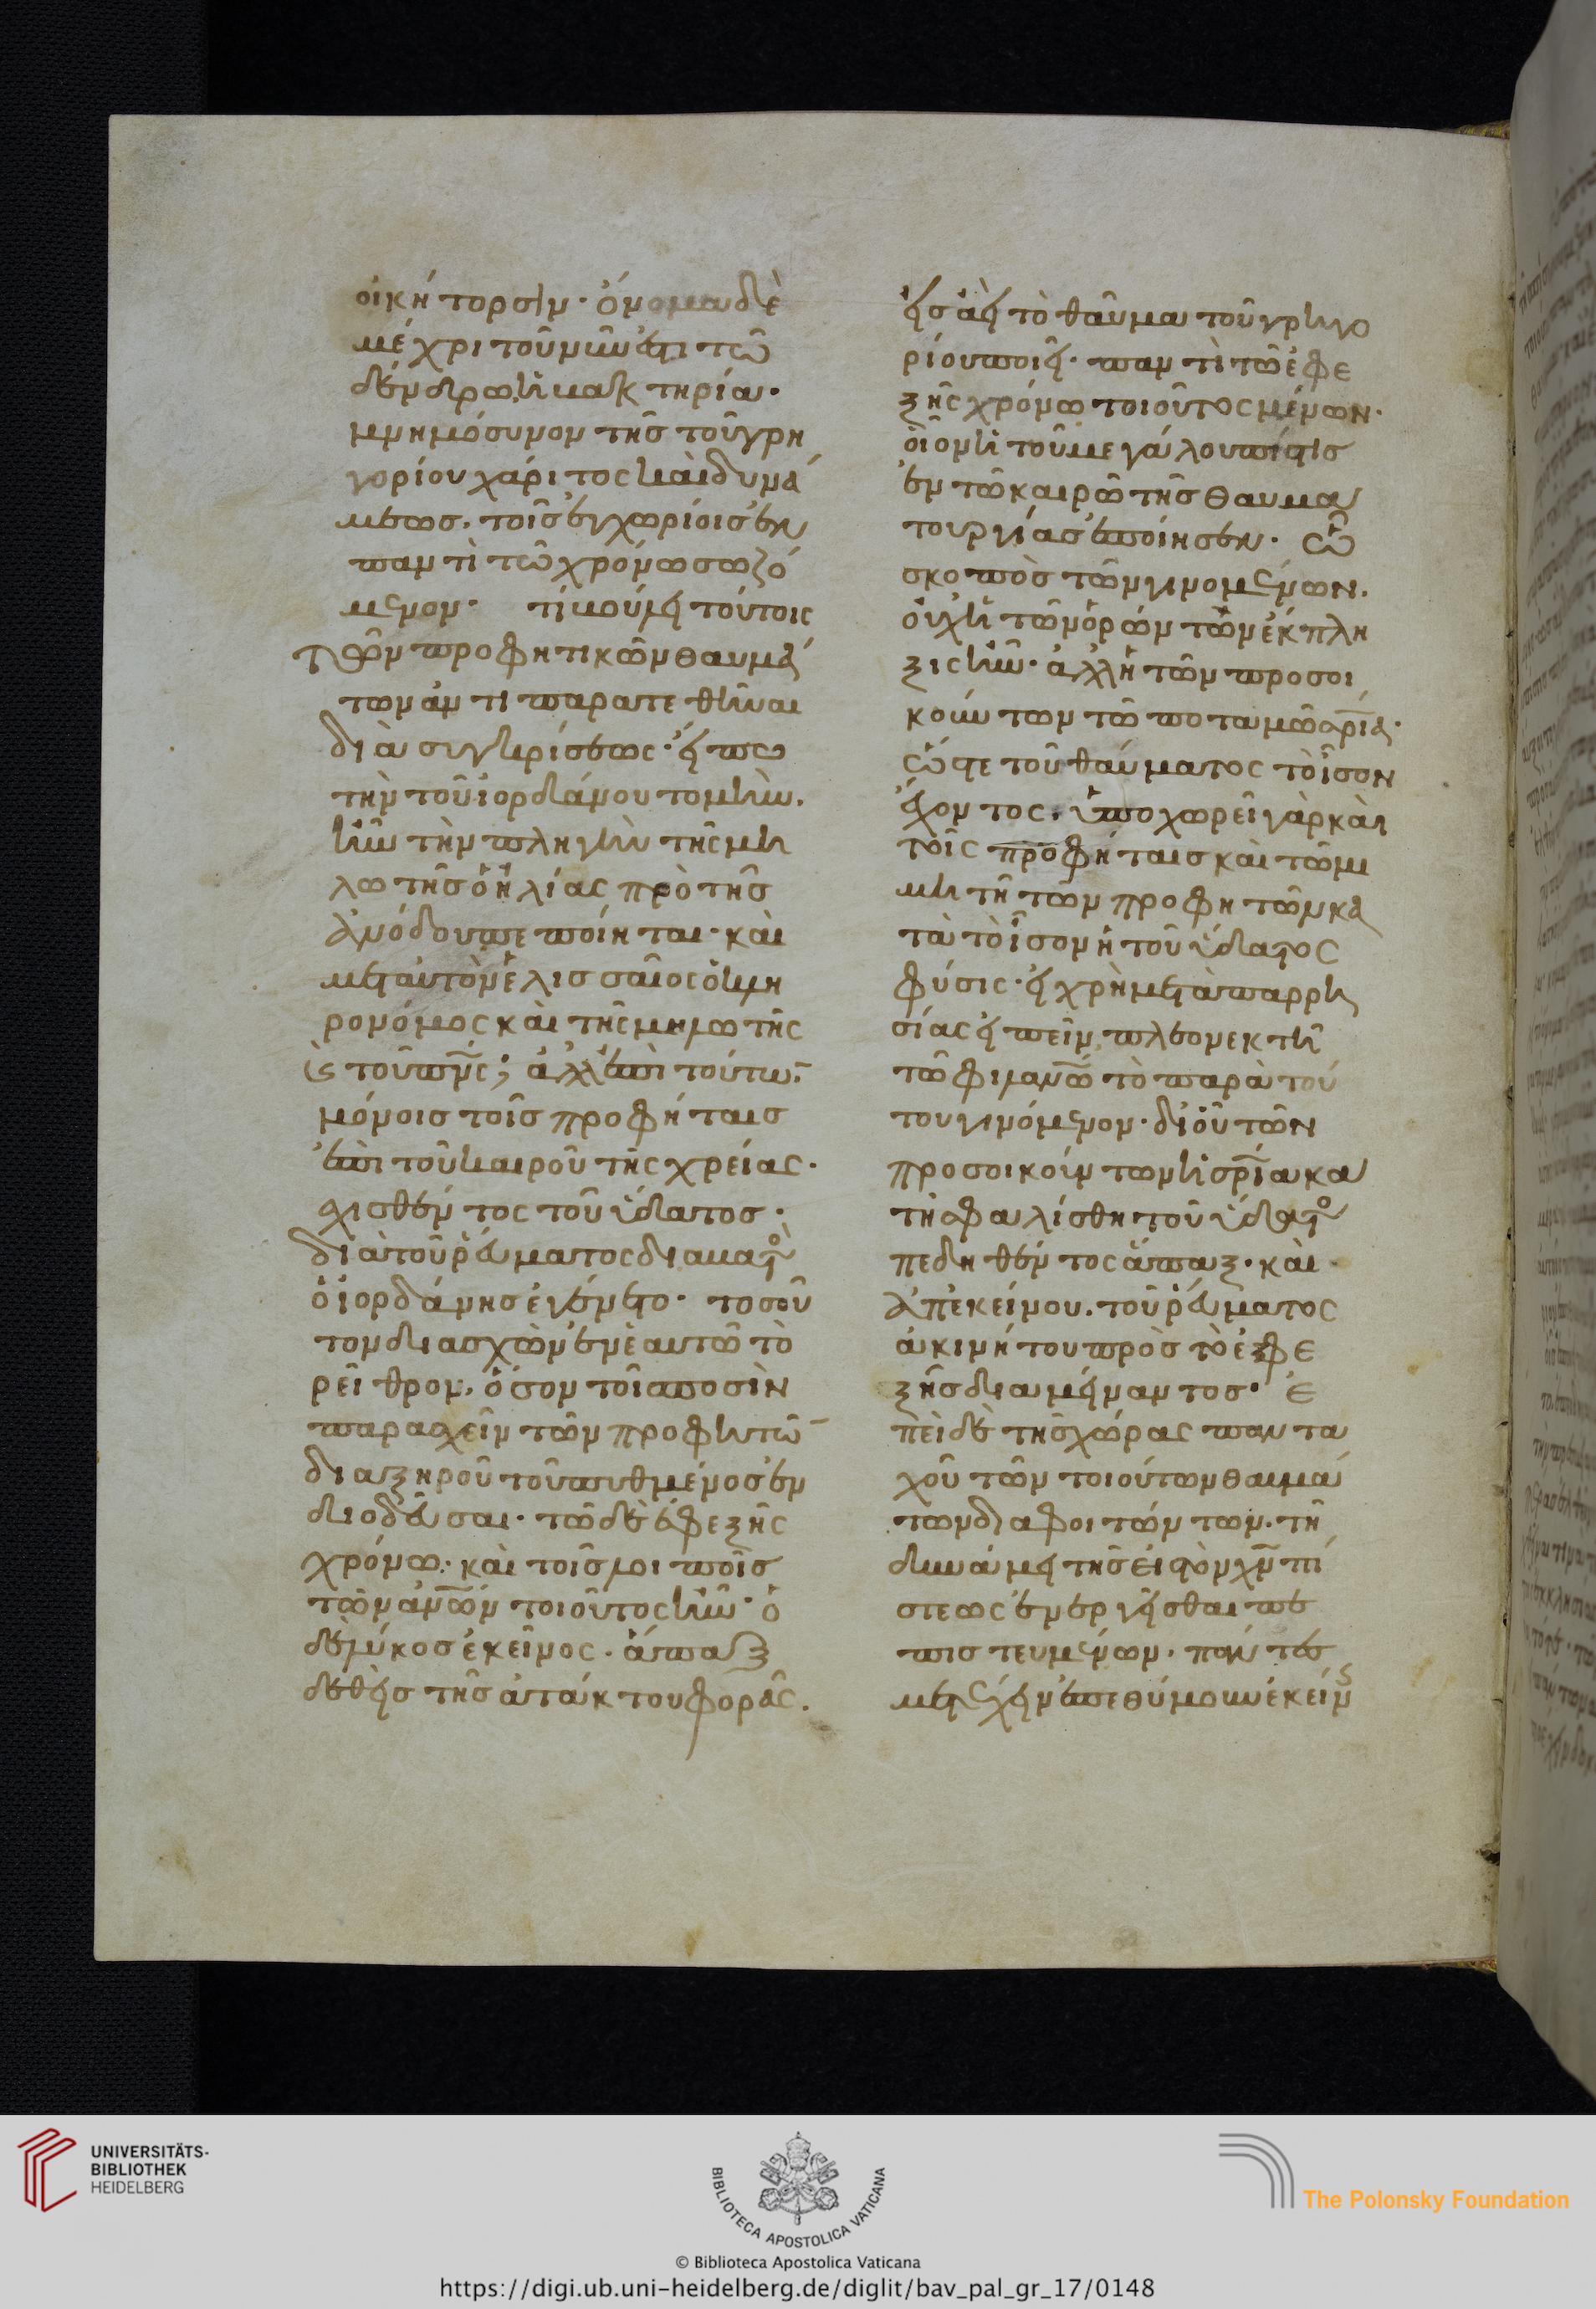 οἰκήτορσιν· ὄνομα δὲ
μέχρι τοῦ νῦν ἐστι τῶ
δένδρω, ἡ βακτηρία·
μνημόσυνον τῆς τοῦ γρη
γορίου χάριτος καὶ δυνά
μεως. τοῖς ἐγχωρίοις ἐν
παντὶ τῶ χρόνω σωζό
μενον· τί μοι νῦν ἐπὶ τούτοις
τῶν προφητικῶν θαυμά
των ἀντιπαρατεθῆναι
διὰ συγκρίσεως· εἴπω
τὴν τοῦ ἰορδάνου τομὴν.
ἣν τὴν πληγὴν τῆς μη
λωτῆς ὁ ἠλίας πρὸ τῆς
ἀνόδου πεποίηται· καὶ
μετ αὐτὸν ἐλισσαῖος ὁ κλη
ρονόμος καὶ τῆς μηλωτῆς
καὶ τοῦ πνς; ἀλλ ἐπὶ τούτων
μόνοις τοῖς προφήταις
ἐπὶ τοῦ καιροῦ τῆς χρείας·
σχισθέντος τοῦ ὕδατος·
διὰ τοῦ ῥεύματος διαβατὸς
ὁ ἰορδάνης ἐγένετο· τοσοῦ
τον διασχὼν ἐν ἑαυτῶ τὸ
ρεῖθρον, ὅσον τοῖς ποσὶν
παρασχεῖν τῶν προφητῶν
διὰ ξηροῦ τοῦ πυθμένος ἐν
διοδεῦσαι· τῶ δὲ ἐφεξῆς
χρόνω· καὶ τοῖς λοιποῖς
τῶν ἀνων τοιοῦτος ἦν· ὁ
δὲ λύκος ἐκεῖνος· ἅπαξ
δεθεὶς τῆς ἀτάκτου φορᾶς.
εἰς ἀεὶ τὸ θαῦμα τοῦ γρηγο
ρίου ποιεῖ· παντὶ τῶ ἐφε
ξῆς χρόνω τοιοῦτος μένων·
οἷον ἡ τοῦ μεγάλου πίστις
ἐν τῶ καιρῶ τῆς θαυμα
τουργίας ἐποίησεν· ὧ
σκοπὸς τῶν γινομένων.
οὐχ ἡ τῶν ὁρώντων ἐκπλη
ξις ἦν· ἀλλ ἡ τῶν προσοι
κούντων τῶ ποταμῶ σρία·
ὥστε τοῦ θαύματος τὸ ἴσον
ἔχοντος, ὑποχωρεῖ γὰρ καὶ
τοῖς προφήταις καὶ τῶ μι
μητῆ τῶν προφητῶν κα
τὰ τὸ ἴσον ἡ τοῦ ὕδατος
φύσις· εἰ χρὴ μετὰ παρρη
σίας εἰπεῖν, πλεονεκτεῖ
τῶ φιλανω τὸ παρὰ τού
του γινόμενον· δι οὗ τῶν
προσοικούντων ἡ σρία κα
τησφαλίσθη τοῦ ὕδατος
πεδηθέντος ἅπαξ· καὶ
ἀπ ἐκείνου. τοῦ ῥεύματος
ἀκινήτου πρὸς τὸ ἐφε
ξῆς διαμείναντος· Ἐ
πεὶ δὲ τῆς χώρας παντα
χοῦ τῶν τοιούτων θαυμά
των διαφοιτώντων. τῆ
δυνάμει τῆς εἰς τὸν χν πί
στεως ἐνεργεῖσθαι πε
πιστευμένων, πάντες
μετέχειν ἐπεθύμουν ἐκείνης
UNIVERSITÄTS-
BIBLIOTHEK
HEIDELBERG
BIBLIOTECA APOSTOLICA VATICANA
The Polonsky Foundation
© Biblioteca Apostolica Vaticana
https://digi.ub.uni-heidelberg.de/diglit/bav_pal_gr_17/0148